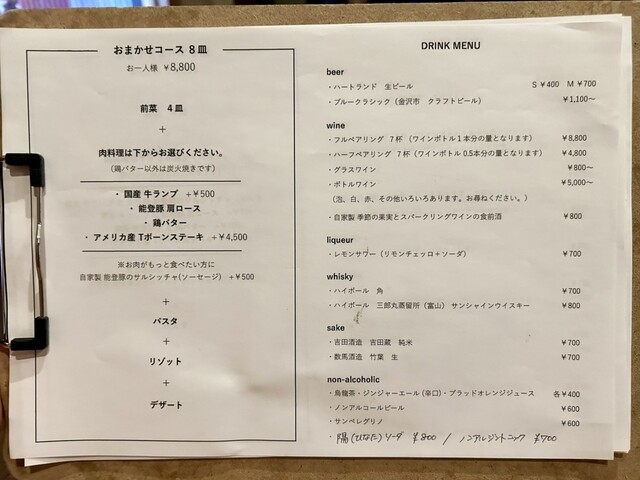 おまかせコース 8皿
お一人様 ￥8,800
前菜 4皿
+
肉料理は下からお選びください。
（鶏バター以外は炭火焼きです）
・ 国産 牛ランプ +￥500
・ 能登豚 肩ロース
・ 鶏バター
・ アメリカ産 Tボーンステーキ +￥4,500
※お肉がもっと食べたい方に
自家製 能登豚のサルシッチャ(ソーセージ) +￥500
+
パスタ
+
リゾット
+
デザート
DRINK MENU
beer
・ハートランド 生ビール S ￥400 M ￥700
・ブルークラシック（金沢市 クラフトビール） ￥1,100～
wine
・フルペアリング 7杯（ワインボトル1本分の量となります） ￥8,800
・ハーフペアリング 7杯（ワインボトル0.5本分の量となります） ￥4,800
・グラスワイン ￥800～
・ボトルワイン ￥5,000～
（泡、白、赤、その他いろいろあります。お尋ねください。）
・自家製 季節の果実とスパークリングワインの食前酒 ￥800
liqueur
・レモンサワー（リモンチェッロ＋ソーダ） ￥700
whisky
・ハイボール 角 ￥700
・ハイボール 三郎丸蒸留所（富山） サンシャインウイスキー ￥800
sake
・吉田酒造 吉田蔵 純米 ￥700
・数馬酒造 竹葉 生 ￥700
non-alcoholic
・烏龍茶・ジンジャーエール(辛口)・ブラッドオレンジジュース 各￥400
・ノンアルコールビール ￥600
・サンペレグリノ ￥600
・陽(ひなた)ソーダ ￥800 / ノンアルジントニック ￥700